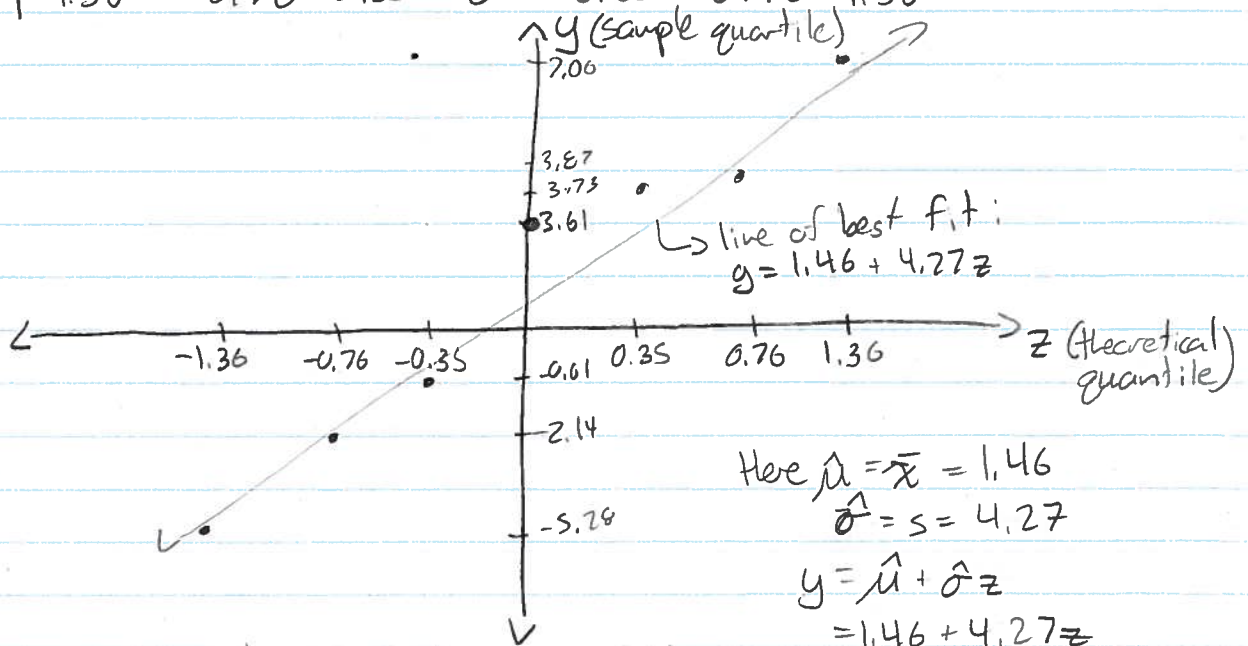 y (sample quartile)
7.06
3.87
3.73
3.61
line of best fit:
y = 1.46 + 4.27z
-1.36 -0.76 -0.35 0.35 0.76 1.36
z (theoretical quantile)
-0.61
-2.14
-5.28
Here μ̂ = x̄ = 1.46
σ̂ = s = 4.27
y = μ̂ + σ̂ z
= 1.46 + 4.27z